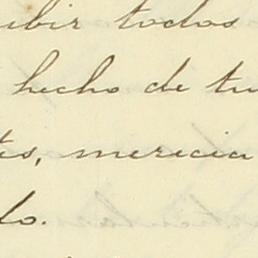 ibir todos
hecho de tu
tes, merecia
do.